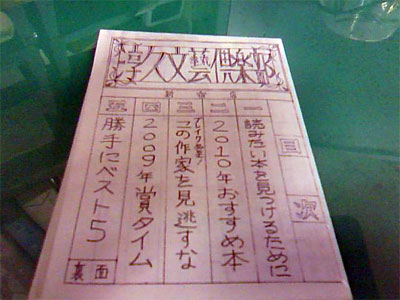 淳久文藝
新宿店
目次
一 読みたい本を見つけるために
二 2010年おすすめ本
三 ブレイク必至!
この作家を見逃すな
四 2009年賞タイム
五 勝手にベスト5
裏面